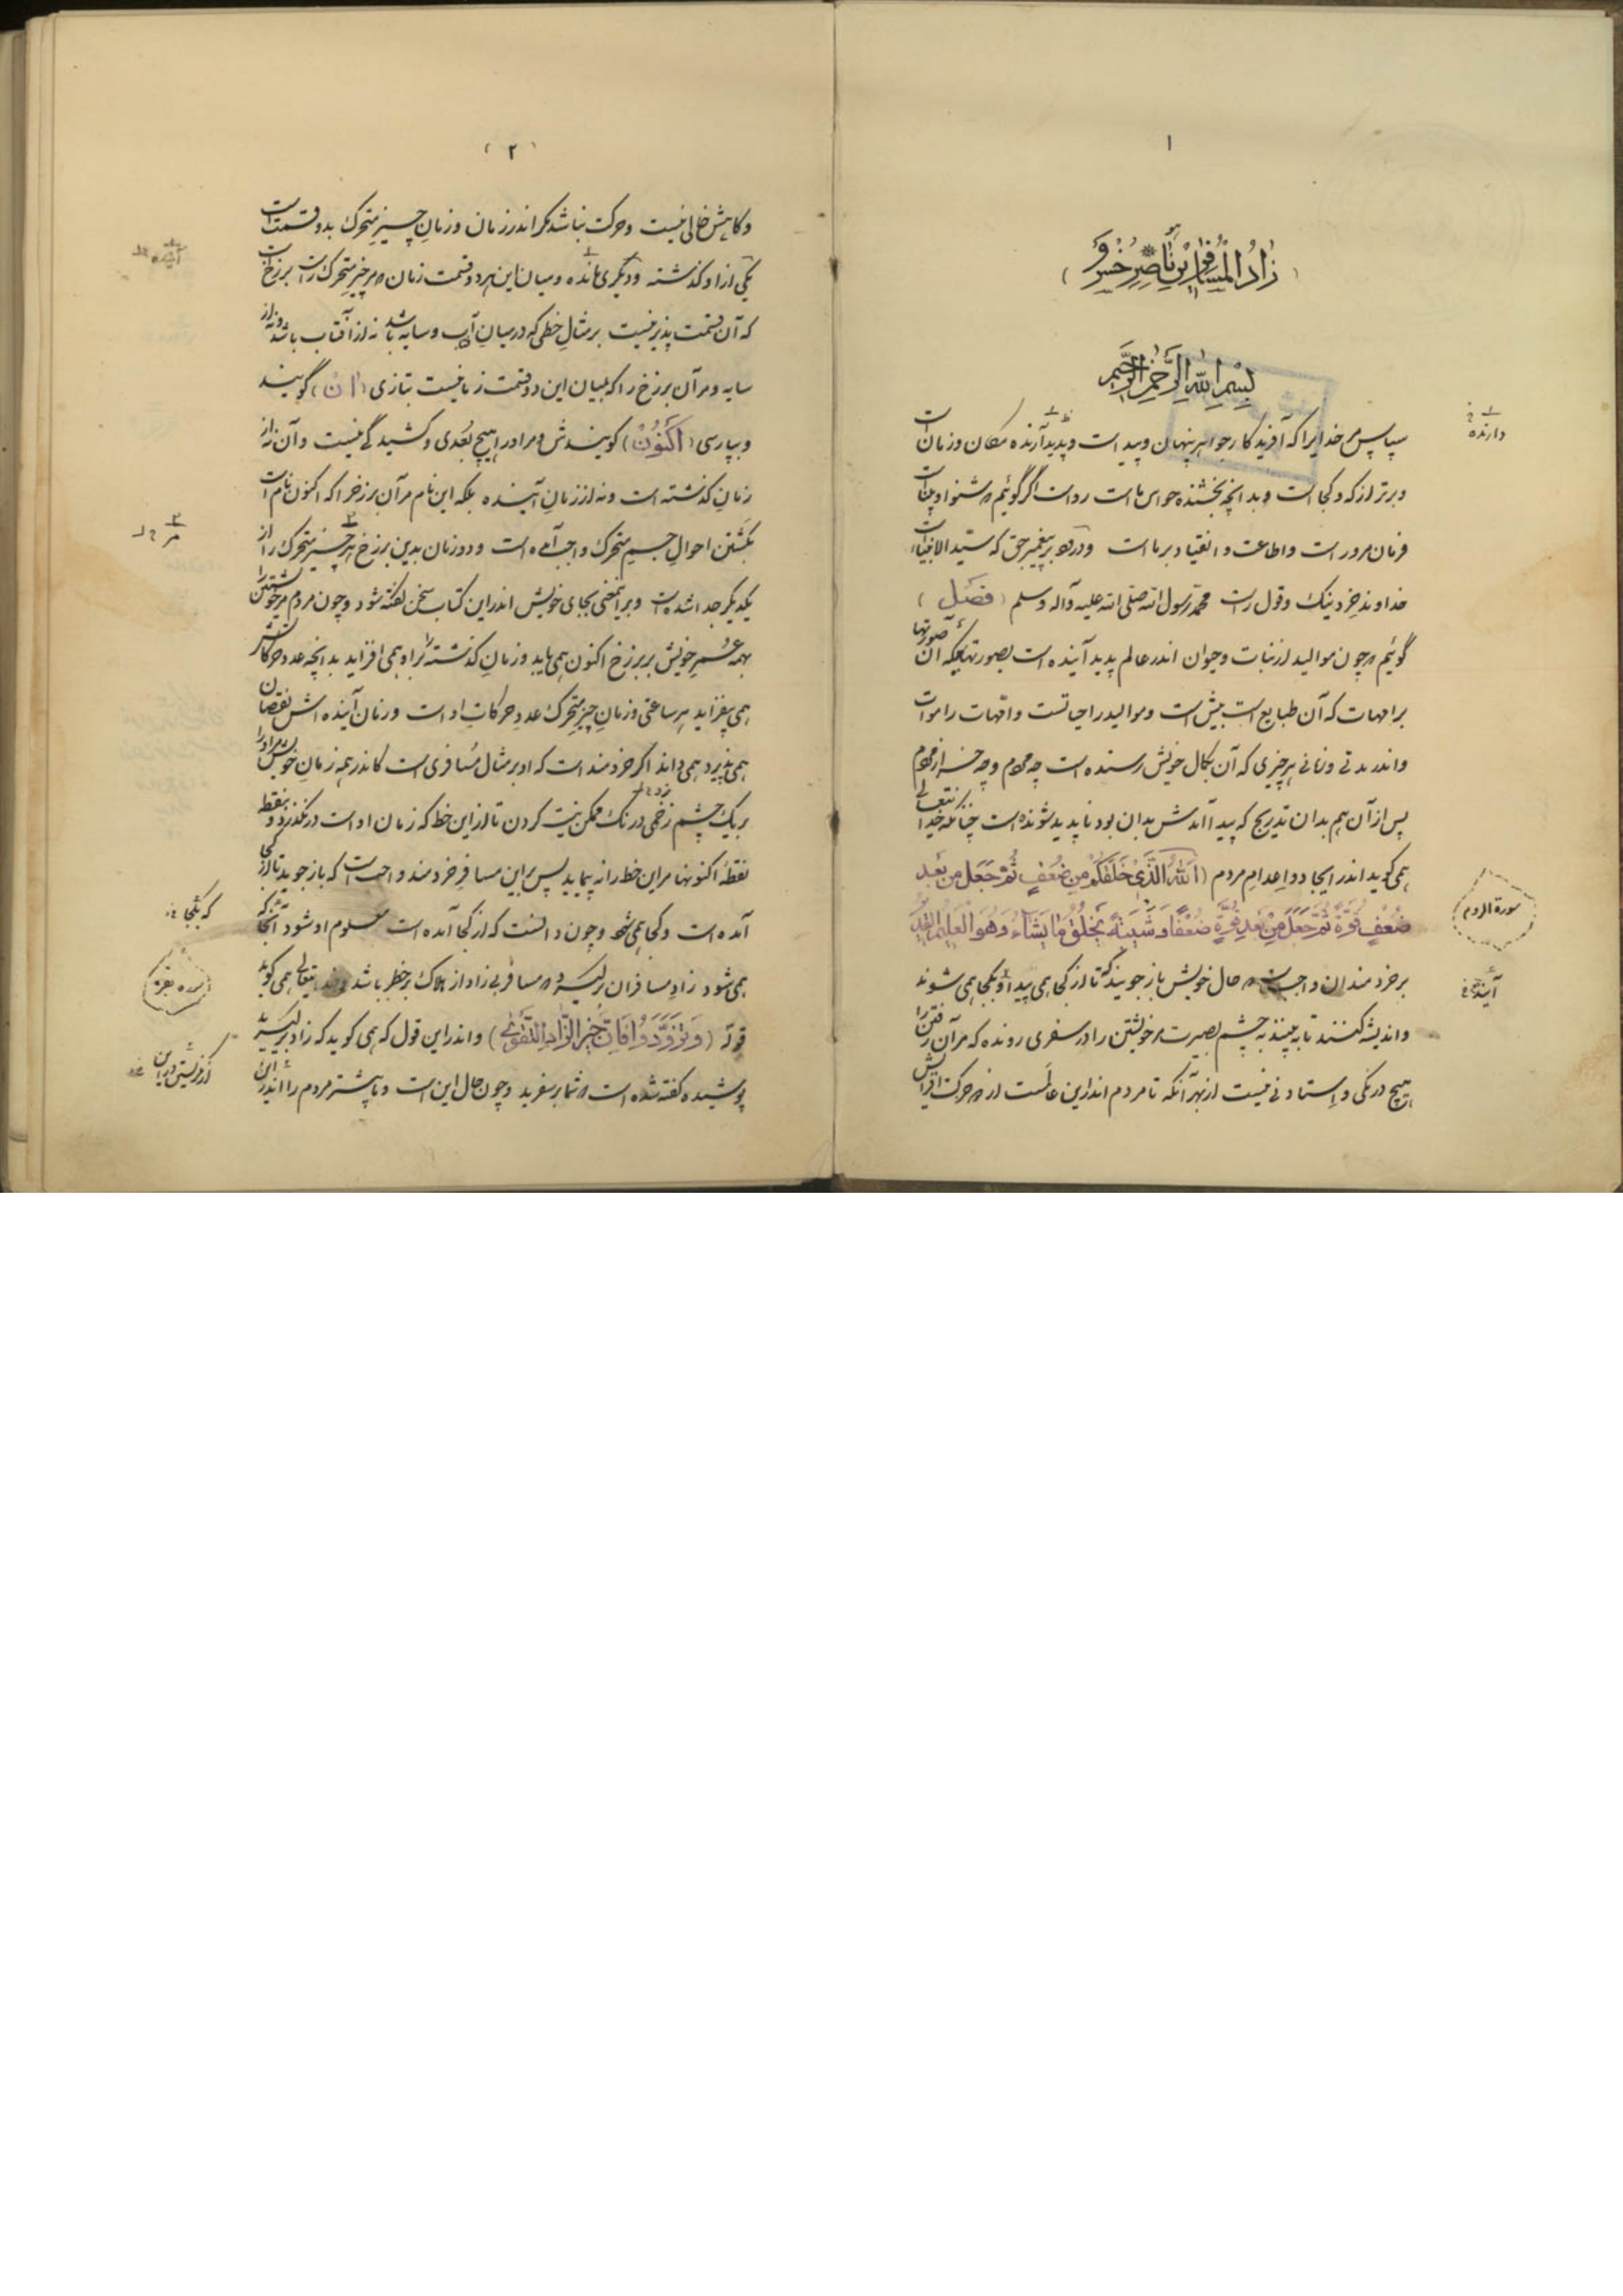 ۱
( زاد المسافرین ناصر خسرو )
بسم الله الرحمن الرحیم
سپاس مر خدایرا که آفریدگار جواهر پنهان و پیداست و پدید آرنده مکان و زمان است
و برتر از که و کجا است و بدانچه بخشنده حواس ماست رواست اگر گوئیم که شنوا و بیناست
فرمان مرور است و اطاعت و انقیاد بر ما است و درود بر پیغمبر حق که سید الانبیاء است
خداوند خرد نیک و قول راست محمد رسول الله صلی الله علیه و آله وسلم ( فصل )
گوئیم که چون موالید از نبات و حیوان اندر عالم پدید آینده است بصورتهائیکه آن صورتها
بر امهات که آن طبایع است بیش است و موالید را حیاتست و امهات را موات
و اندر مدتی و زمانی هر چیزی که آن بکمال خویش رسنده است چه مردم و چه جز از مردم
پس از آن هم بدان تدریج که پیدا آمدش بدان بود ناپدید شونده است چنانکه خدایتعالی
همی گوید اندر ایجاد و اعدام مردم ( الله الذی خلقکم من ضعف ثم جعل من بعد
ضعف قوة ثم جعل من بعد قوة ضعفا و شیبة یخلق ما یشاء و هو العلیم القدیر
بر خردمندان واجبست که حال خویش باز جویند که تا از کجا همی پیدا آیند و بکجا همی شوند
و اندیشه کنند تا به بینند به چشم بصیرت مر خویشتن را در سفری رونده که مر آن رفتن را
هیچ درنگی و استادنی نیست از بهر آنکه تا مردم اندر این عالمست از دو حرکت افزایش
دارنده
سورة الروم
( ۲ )
و کاهش خالی نیست و حرکت نباشد مگر اندر زمان و زمان چیز متحرک بدو قسمت است
یکی از او گذشته و دیگری مانده و میان این هر دو قسمت زمان که مر چیز متحرک راست برزخ است
که آن قسمت پذیر نیست بر مثال خطی که در میان آفتاب و سایه باشد نه از آفتاب باشد و نه از
سایه و مر آن برزخ را که بمیان این دو قسمت زمانیست بتازی ( الان ) گویند
و بپارسی ( اکنون ) گویندش و مر او را هیچ بعدی و کشیدگی نیست و آن نه از
زمان گذشته است و نه از زمان آینده بلکه این نام مر آن برزخ را که اکنون نام است
بگشتن احوال جسم متحرک واجب آمده است و دو زمان بدین برزخ هر چیز متحرک را از
یکدیگر جدا شده است و بر این معنی بجای خویش اندر این کتاب سخن گفته شود و چون مردم مر خویشتن را
بهمه عمر خویش بر برزخ اکنون همی یابد و زمان گذشته بر او همی افزاید بدانچه عدد حرکاتش
همی بیفزاید هر ساعتی و زمان چیز متحرک عدد حرکات او است و زمان آینده اش نقصان
همی پذیرد همی داند اگر خردمند است که او بر مثال مسافری است کاندر همه زمان خویش مر او را
بر یک چشم زخمی درنگ ممکن نیست کردن تا از این خط که زمان او است در نگذرد و نقطه
نقطهٔ اکنونها مر این خط را نه پیماید پس بر این مسافر خردمند واجب است که باز جوید تا از کجا
آمده است و کجا همی شود و چون دانست که از کجا آمده است معلوم او شود آنجا که
همی شود زاد مسافران برگیرد که مسافر بی زاد از هلاک بر خطر باشد و خدایتعالی همی گوید
قوله ( و تزودوا فان خیر الزاد التقوی ) و اندر این قول که همی گوید که زاد برگیرید
پوشیده گفته شده است که شما بر سفرید و چون حال این است و ما پیشتر مردم را اندر این
که بکجا
سوره بقره